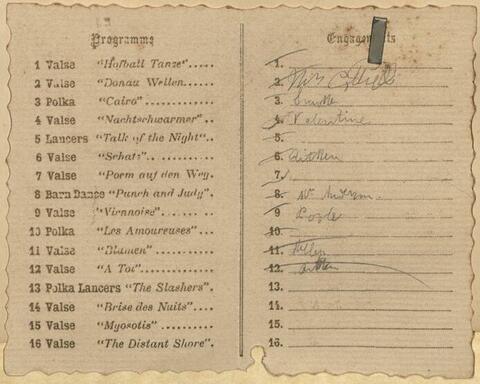 Programme
1 Valse "Hofball Tanze".....
2 Valse "Donau Wellen.....
3 Polka "Cairo"...............
4 Valse "Nachtschwarmer"..
5 Lancers "Talk of the Night"..
6 Valse "Schatz"...............
7 Valse "Poem auf den Weg.
8 Barn Dance "Punch and Judy".
9 Valse "Viennoise"...........
10 Polka "Les Amoureuses"...
11 Valse "Blumen"............
12 Valse "A Toi".............
13 Polka Lancers "The Slashers".
14 Valse "Brise des Nuits"....
15 Valse "Myosotis"...........
16 Valse "The Distant Shore".
Engagements
1.
2.
3.
4. Valentine
5.
6. Aitken
7.
8. Mr Anderson.
9.
10.
11. Allen
12. Aitken
13.
14.
15.
16.